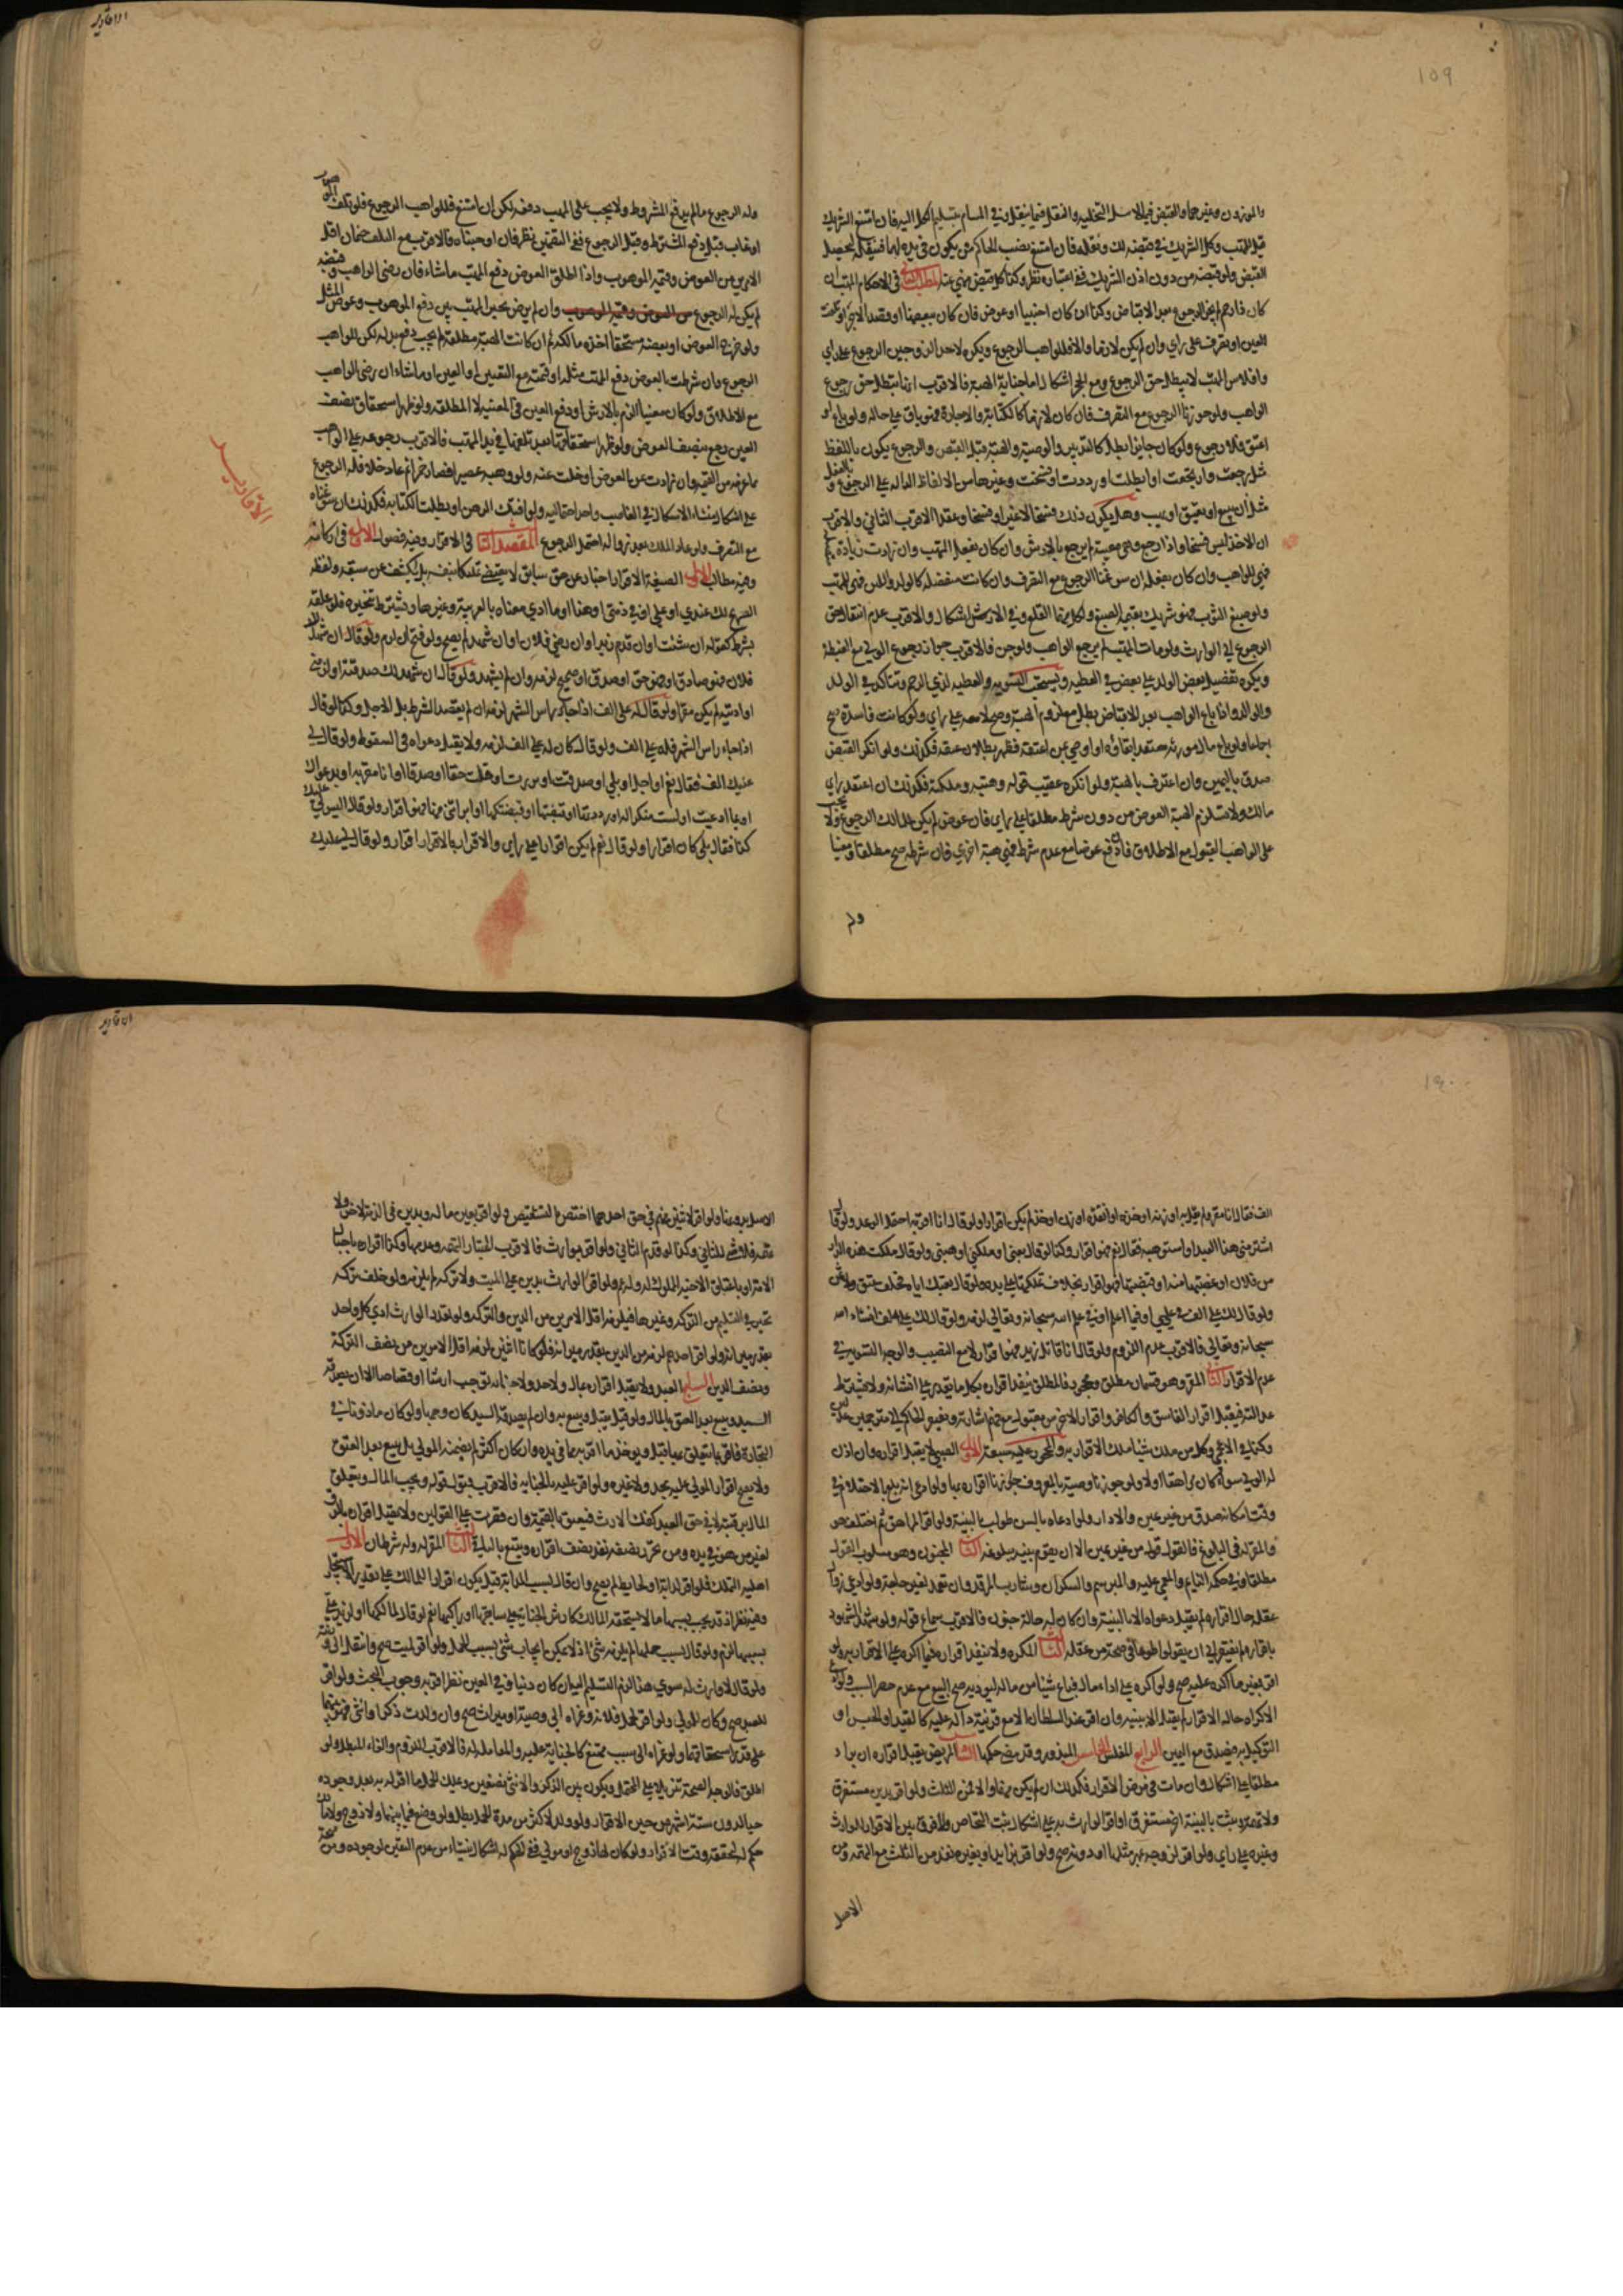 ١٥٩
والموزون وغيرهما والقبض فيما لا ينقل التخلية والنقل فيما ينقل وفي المشاع بتسليم الكل اليه فان امتنع الشريك
قيل للمتهب وكل الشريك في قبضه لك ونقله فان امتنع نصب الحاكم من يكون في يده لهما فينقله ليحصل
القبض ولو قبضه من دون اذن الشريك ففي اعتباره نظر وكذا كل قبض منهي عنه المطلب الثالث في الاحكام المتهب ان
كان ذا رحم لم يجز الرجوع بعد الاقباض وكذا ان كان اجنبيا وعوض
العين او تصرف على راي وان لم يكن لازما والا فللواهب الرجوع ويكره لاحد الزوجين الرجوع على راي
وافلاس المتهب لا يبطل حق الرجوع ومع الحجر اشكال اما جناية الهبة فالاقرب انها تبطل حق رجوع
الواهب ولو جوزنا الرجوع مع التصرف فان كان لازما كالكتابة والاجارة فهو باق على حاله ولو باع او
اعتق فلا رجوع ولو كان جايزا بطل كالتدبير والوصية والهبة قبل القبض والرجوع يكون باللفظ
مثل رجعت وارتجعت او ابطلت او رددت او فسخت وغيرها من الالفاظ الدالة على الرجوع وبالفعل
مثل ان يبيع او يعتق او يهب وهل يكون ذلك فسخا لا غير او فسخا وعقدا الاقرب الثاني والاقرب
ان الاخذ ليس فسخا واذا رجع وهي معيبة لم يرجع بالارش وان كان بفعل المتهب وان زادت زيادة
فهي للواهب وان كان بفعله ان سوغنا الرجوع مع التصرف وان كانت منفصلة كالولد واللبن فهي للمتهب
ولو صبغ الثوب فهو شريك بقيمة الصبغ ولكل منهما القلع وفي الارش اشكال والاقرب عدم انتقال حق
الرجوع الى الوارث ولو مات المتهب لم يرجع الواهب ولو جن فالاقرب جواز رجوع الولي مع الغبطة
ويكره تفضيل بعض الولد على بعض في العطية ويستحب التسوية والعطية لذي الرحم وتتاكد في الولد
والوالد واذا باع الواهب بعد الاقباض بطل مع لزوم الهبة وصح لا معه على راي ولو كانت فاسدة صح
اجماعا ولو باع مال مورثه معتقدا بقاؤه او اوصى بمن اعتقه فظهر بطلان عتقه فكذلك ولو انكر القبض
صدق باليمين وان اعترف بالهبة ولو انكره عقيب قوله وهبته وملكته فكذلك ان اعتقد راي
مالك ولا تستلزم الهبة العوض من دون شرط مطلقا على راي فان عوض لم يكن للمالك الرجوع ولا يجب
على الواهب القبول مع الاطلاق فان دفع عوضا مع عدم شرط فهي هبة اخرى فان شرطه صح مطلقا ومعينا
وله
الاقارير
وله الرجوع ما لم يدفع المشروط ولا يجب على المتهب دفعه لكن ان امتنع فللواهب الرجوع فلو تلف
او عاب قبل دفع المشترط وقبل الرجوع ففي التضمين نظر فان اوجبناه فالاقرب مع التلف ضمان اقل
الامرين من العوض وقيمة الموهوب واذا اطلق العوض دفع المتهب ما شاء فان رضي الواهب وقبضه
لم يكن له الرجوع من العوض وقيمة الموهوب وان لم يرض تخير المتهب بين دفع الموهوب وعوض المثل
ولو خرج العوض او بعضه مستحقا اخذه مالكه ثم ان كانت الهبة مطلقة لم يجب دفع بدله لكن للواهب
الرجوع وان شرطت بالعوض دفع المتهب مثله او قيمته مع التعيين او العين او ما شاء ان رضي الواهب
مع الاطلاق ولو كان معيبا الزم بالارش او دفع العين في المعينة لا المطلقة ولو ظهر استحقاق نصف
العين رجع بنصف العوض ولو ظهر استحقاقها بعد تلفها في يد المتهب فالاقرب رجوعه على الواهب
بما غرمه من القيمة وان زادت عن العوض او خلت عنه ولو وهبه عصيرا فصار خمرا ثم عاد خلا فله الرجوع
على اشكال ينشا من الاشكال في الغاصب واحد احتماليه ولو افتك الرهن او بطلت الكتابة فكذلك ان سوغناه
مع التصرف ولو عاد الملك بعد زواله احتمل الرجوع المقصد الثالث في الاقرار وفيه فصول الاول في اركانه
وفيه مطالب الاول الصيغة الاقرار اخبار عن حق سابق لا يقتضي تمليكا بنفسه بل يكشف عن سبقه ولفظه
الصريح لك عندي او على او في ذمتي او هذا وما ادى معناه بالعربية وغيرها ويشترط تنجيزه فلو علقه
بشرط كقوله ان شئت او ان قدم زيد او ان رضي فلان او ان شهد لم يصح ولو فتح ان لزم ولو قال ان شهد لك
فلان فهو صادق او فهو حق او صدق او صحيح لزمه وان لم يشهد ولو قال ان شهد لك صدقته او لزمني
او اديته لم يكن مقرا ولو قال له على الف اذا جاء راس الشهر لزمه ان لم يقصد الشرط بل الاجل وكذا لو قال
اذا جاء راس الشهر فله على الف ولو قال كان له على الف لزمه ولا يقبل دعواه في السقوط ولو قال لي
عليك الف فقال نعم او اجل او بلى او صدقت او بررت او قلت حقا او صدقا او انا مقر به او بدعواك
او بما ادعيت او لست منكرا له او رددتها او قضيتها او قبضتكها او ابراتني منها فهو اقرار ولو قال اليس لي عليك
كذا فقال بلى كان اقرارا ولو قال نعم لم يكن اقرارا على راي والاقرار بالاقرار اقرار ولو قال لي عليك
الاقارير
١٦٠
الف فقال انا مقر ولم يقل به او زنه او خذه او انتقده او زن او خذ لم يكن اقرارا ولو قال انا اقر به احتمل الوعد ولو قال
اشتر مني هذا العبد او استوهبه فقال نعم فهو اقرار وكذا لو قال بعني او ملكني او هبني ولو قال ملكت هذه الدار
من فلان او غصبتها منه او قبضتها فهو اقرار بخلاف تملكتها على يده ولو قال بعتك اباك فحلف عتق ولا ثمن
ولو قال لك على الف في علمي او فيما اعلم او في علم الله سبحانه وتعالى لزمه ولو قال لك على الف انشاء الله
سبحانه وتعالى فالاقرب عدم اللزوم ولو قال انا قاتل زيد فهو اقرار لا مع النصب والوجه التسوية في
عدم الاقرار الثاني المقر وهو قسمان مطلق ومحجور فالمطلق ينفذ اقراره بكل ما يقدر على انشائه ولا يشترط
عدالته فيقبل اقرار الفاسق والكافر واقرار الاخرس مقبول مع فهم اشارته ويفتقر الحاكم الى مترجمين عدلين
وكذا في الاعجمي وكل من ملك شيئا ملك الاقرار به والمحجور عليه ستة الاول الصبي لا يقبل اقراره وان اذن
له الولي سواء كان مراهقا او لا ولو جوزنا وصيته بالمعروف جوزنا اقراره بها ولو ادعى انه بلغ بالاحتلام في
وقت امكانه صدق من غير يمين والا دار ولو ادعاه بالسن طولب بالبينة ولو اقر المراهق ثم اختلف هو
والمقر له في البلوغ فالقول قوله من غير يمين الا ان يقوم بينة ببلوغه الثاني المجنون وهو مسلوب القول
مطلقا وفي حكمه النايم والمغمى عليه والمبرسم والسكران وشارب المرقد وان تعمد لغير حاجة ولو ادعى زوال
عقله حال اقراره لم يقبل دعواه الا بالبينة وان كان له حالة جنون فالاقرب سماع قوله ولو شهد الشهود
باقراره لم يفتقر الى ان يقولوا طوعا في صحة من عقله الثالث المكره ولا ينفذ اقراره فيما اكره على الاقرار به ولو
اقر بغير ما اكره عليه صح ولو اكره على اداء مال فباع شيئا من ماله ليؤديه صح البيع مع عدم حصر السبب ولو ادعى
الاكراه حالة الاقرار لم يقبل الا ببينة وان اقر عند السلطان الا مع قرينة دالة عليه كالقيد او الحبس او
التوكيل به فيصدق مع اليمين الرابع المفلس الخامس المبذر وقد مضى حكمهما السادس المريض يقبل اقراره ان برا
مطلقا على اشكال وان مات في مرض الاقرار فكذلك ان لم يكن متهما والا فمن الثلث ولو اقر بدين مستغرق
ولا تهمة وثبت بالبينة اخر مستغرق او اقر الوارث به على اشكال ثبت التحاص ولا فرق بين الاقرار للوارث
وغيره على راي ولو اقر لزوجته بمهر مثلها او دونه صح ولو اقر بزايد او بغيره نفذ من الثلث مع التهمة ومن
الاصل
الاصل بدونها ولو اقر لاثنين متهم في حق احدهما اختص بالتشقيص ولو اقر بعين ماله وبدين في الذمة لاخر ولا
تهمة فلا شيء للثاني وكذا لو قدم الثاني ولو اقر بوارث فالاقرب اعتبار التهمة وعدمها وكذا اقراره باحبال
الامة او باعتاق الاخ المملوك له ولزم ولو اقر الوارث بدين على الميت ولا تركة لم يلزمه ولو خلف تركة
تخير في التسليم من التركة وغيرها فيلزمه اقل الامرين من الدين والتركة ولو تعدد الوارث ادى كل واحد
بقدر ميراثه ولو اقر احدهم لزمه من الدين بقدر ميراثه فلو كانا اثنين لزمه اقل الامرين من نصف التركة
ونصف الدين السابع العبد ولا يقبل اقراره بمال ولا حد ولا جناية توجب ارشا او قصاصا الا ان يصدقه
السيد ويتبع بعد العتق بالمال ولو قيل يقبل ويتبع به وان لم يصدقه السيد كان وجها ولو كان ماذونا في
التجارة فاقر بما يتعلق بها قبل ويؤخذ ما اقر به مما في يده وان كان اكثر لم يضمنه المولى بل يتبع بعد العتق
ولا يصح اقرار المولى عليه بحد ولا غيره ولو اقر عليه بالجناية فالاقرب قبول قوله ويجب المال ويتعلق
لغيره من هو في يده ومن تحرر نصفه نفذ نصف اقراره ويتبع بالباقي الثالث المقر له وله شرطان الاول
اهلية التملك فلو اقر لدابة او لحايط لم يصح وان قال بسبب الدابة قيل يكون اقرارا للمالك على تقدير الاستيجار
وفيه نظر اذ قد يجب بسببها ما لا يستحقه المالك كارش الجناية على سايقها او راكبها نعم لو قال لمالكها او لزيد على
بسببها لزم ولو قال بسبب حملها لم يلزمه شيء اذ لا يمكن ايجاب شيء بسبب الحمل ولو اقر لميت صح وانتقل الى ورثته
ولو قال لا وارث له سوى هذا الزم التسليم اليه ان كان دينا وفي العين نظر اقربه وجوب البحث ولو اقر
للعبد صح وكان للمولى ولو اقر لحمل فلانة وعزاه الى وصية او ميراث صح وان ولدت ذكرا وانثى فهو بينهما
على قدر استحقاقهما ولو عزاه الى سبب ممتنع كالجناية عليه والمعاملة له فالاقرب اللزوم والغاء المبطل ولو
اطلق فالوجه الصحة تنزيلا على المحتمل ويكون بين الذكر والانثى نصفين ويملك الحمل ما اقر له به بعد وجوده
حيا لدون ستة اشهر من حين الاقرار ولو ولد لاكثر من مدة الحمل بطل ولو وضع فيما بينهما ولا زوج ولا مولى
حكم له لتحققه وقت الاقرار ولو كان لها زوج او مولى ففي الحكم له اشكال ينشاء من عدم اليقين لوجوده ومن صحة
الاقارير